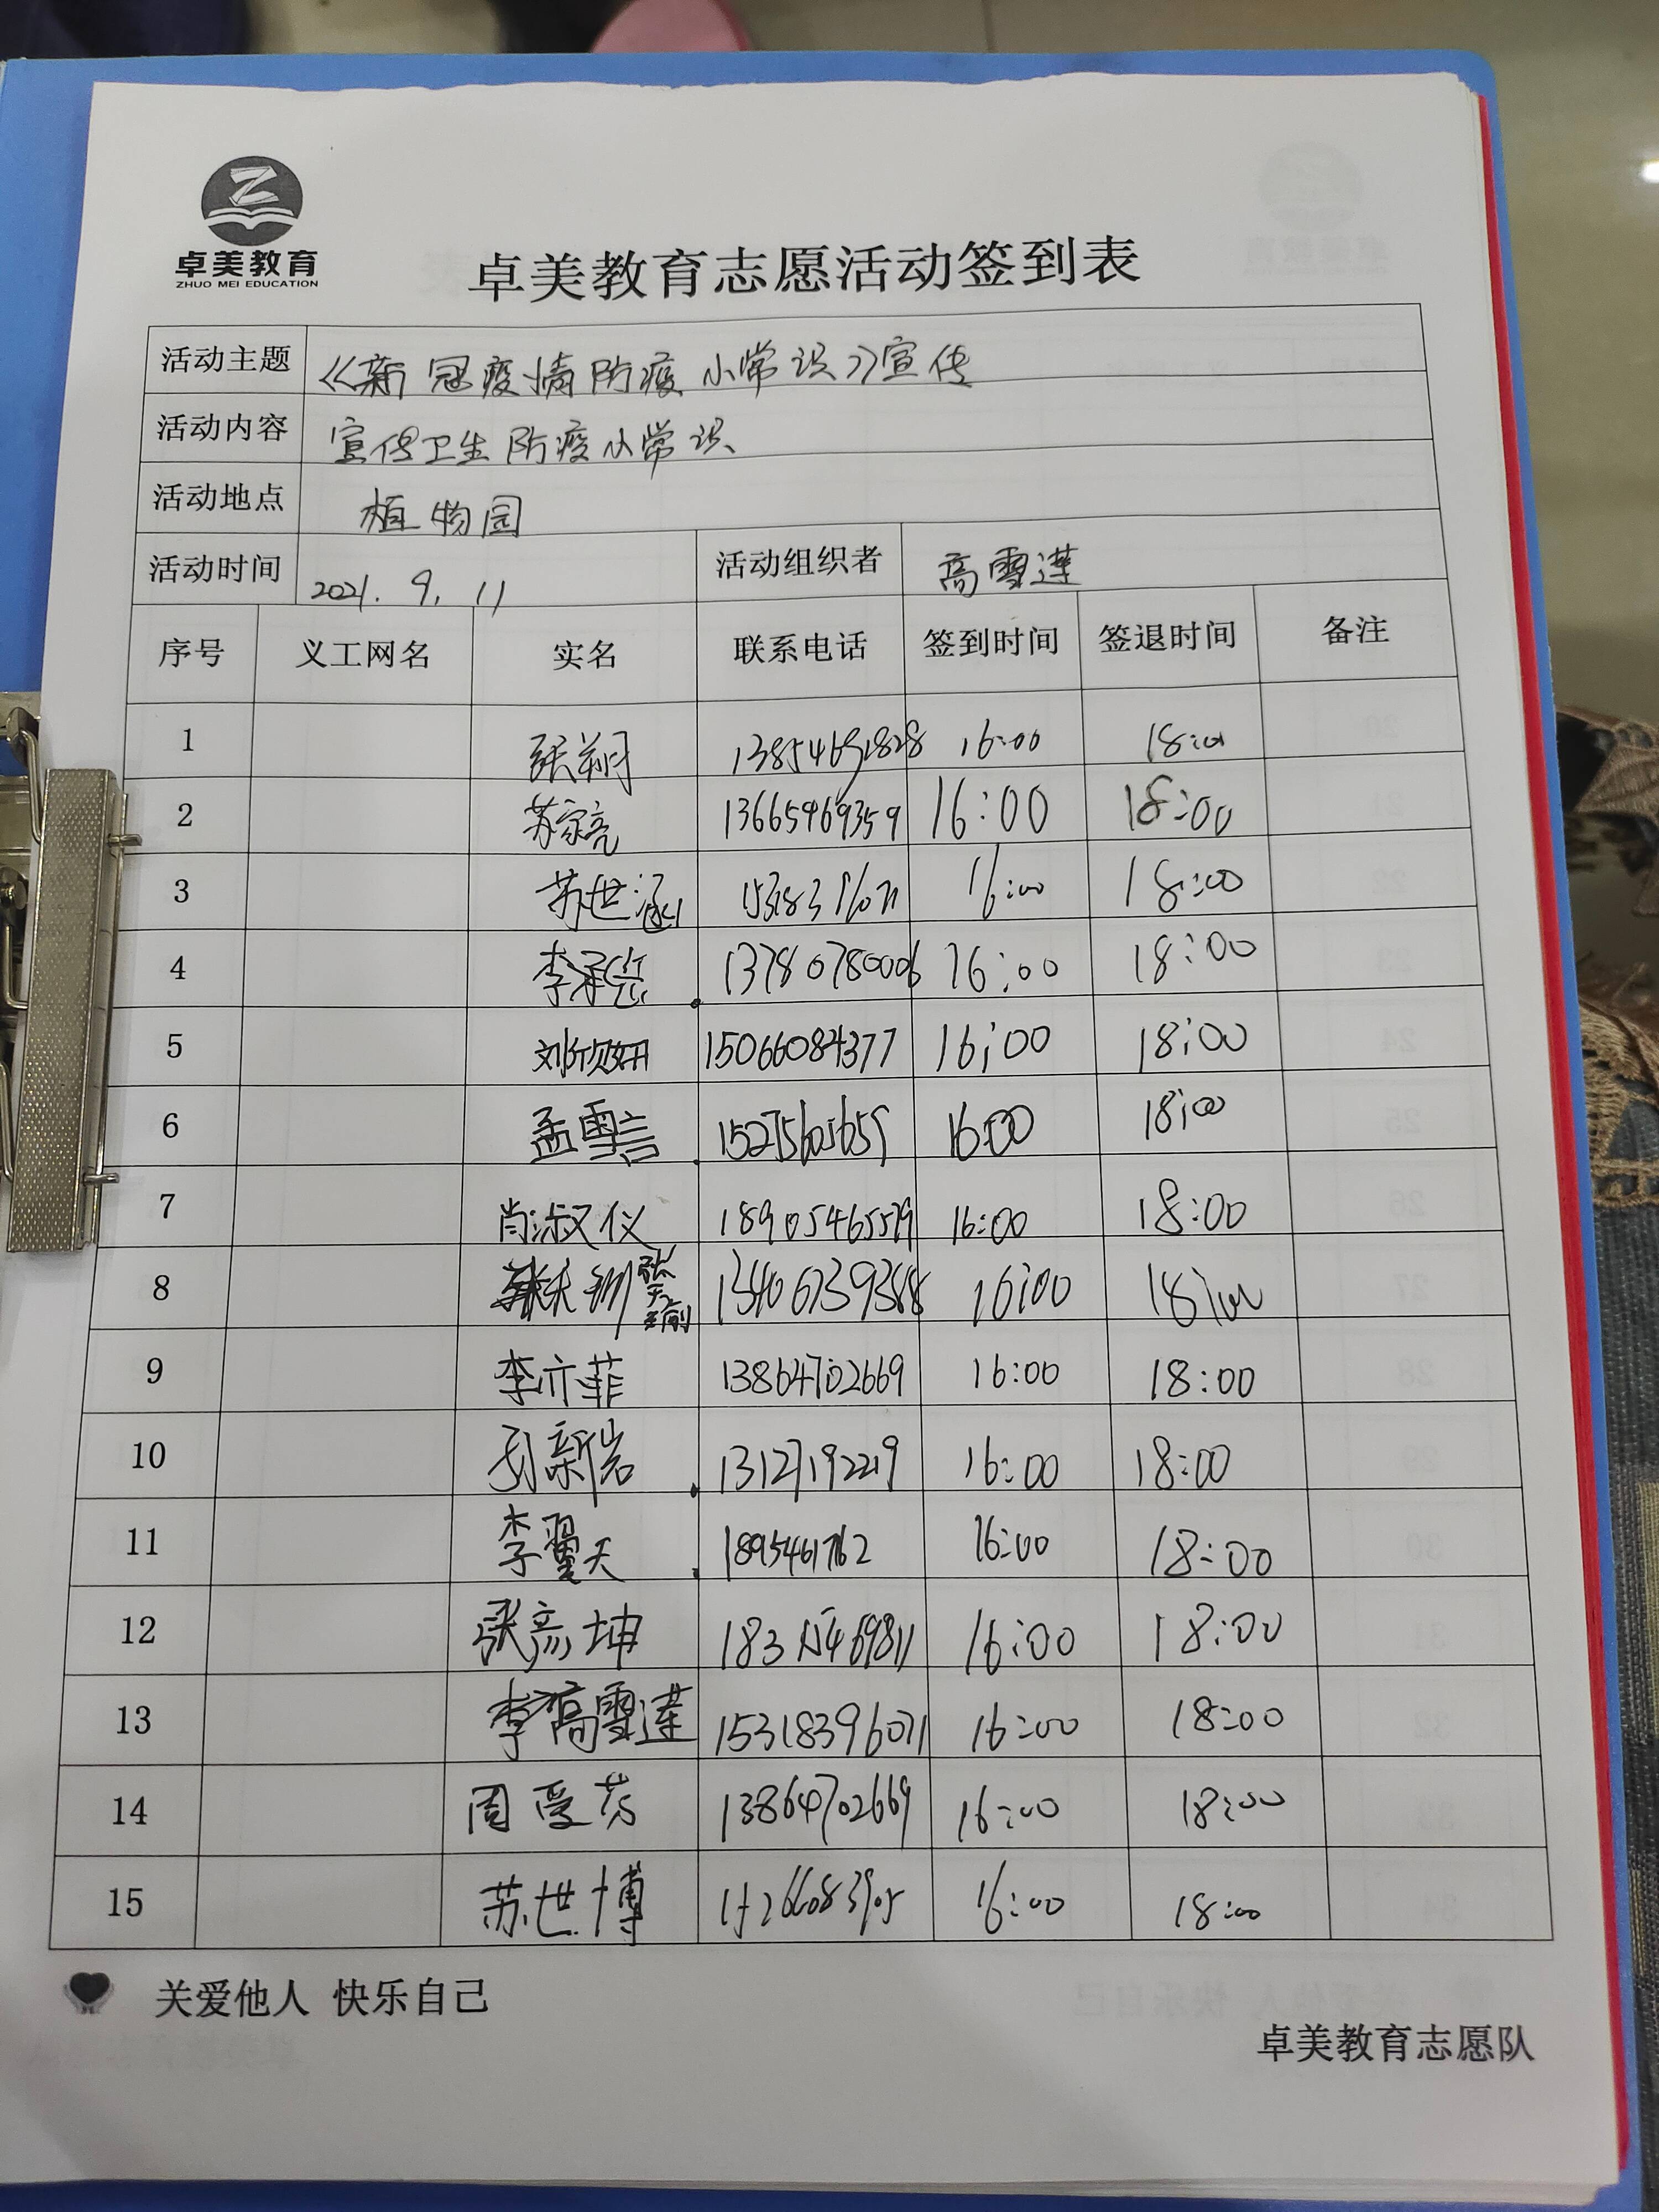 卓美教育
ZHUO MEI EDUCATION
卓美教育志愿活动签到表
活动主题 《新冠疫情防疫小常识》宣传
活动内容 宣传卫生防疫小常识
活动地点 植物园
活动时间 2021.9.11 活动组织者 高雪莲
序号 义工网名 实名 联系电话 签到时间 签退时间 备注
1 张朔 13854691828 16:00 18:00
2 苏家亮 13665469359 16:00 18:00
3 苏世涵 16:00 18:00
4 13780780006 16:00 18:00
5 刘欣妍 15066084377 16:00 18:00
6 孟雪言 16:00 18:00
7 肖淑仪 16:00 18:00
8 16:00 18:00
9 李亦菲 13864702669 16:00 18:00
10 16:00 18:00
11 李翼天 16:00 18:00
12 张彦坤 16:00 18:00
13 高雪莲 15318396071 16:00 18:00
14 周爱芬 13864702669 16:00 18:00
15 苏世博 16:00 18:00
关爱他人 快乐自己
卓美教育志愿队